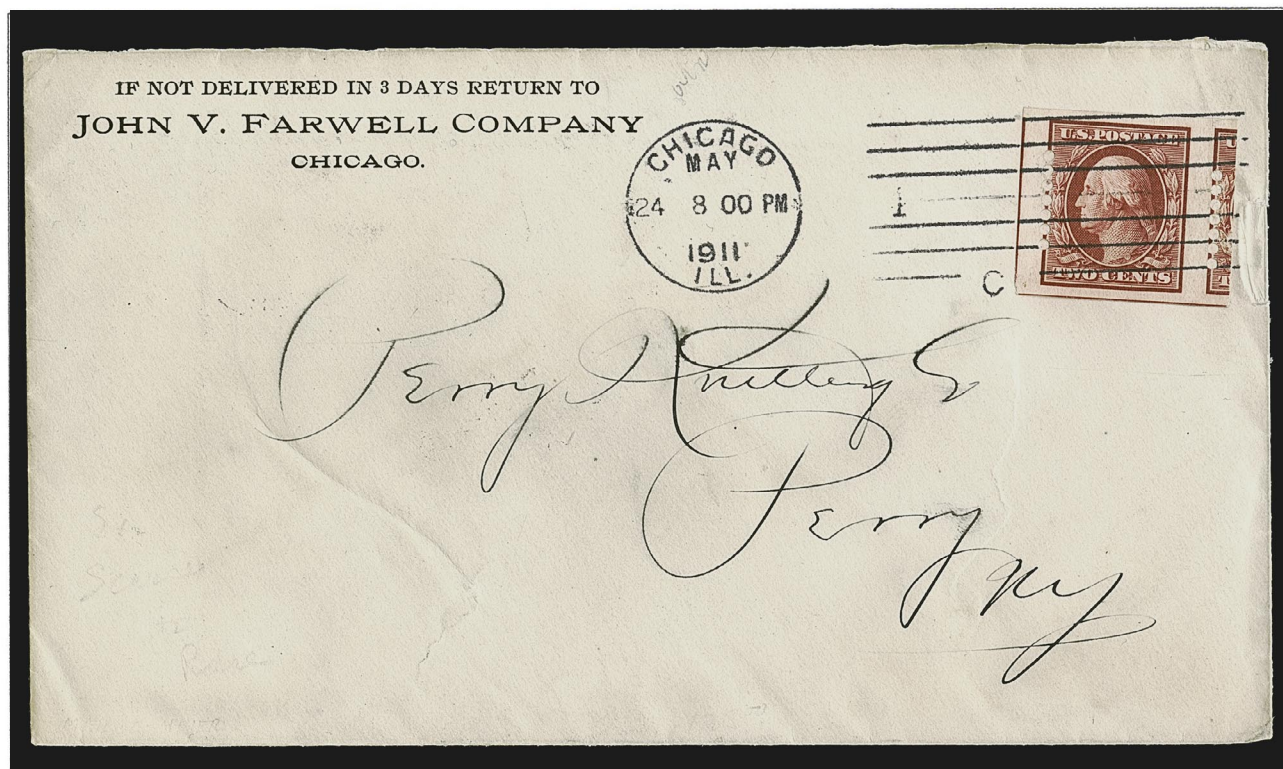 IF NOT DELIVERED IN 3 DAYS RETURN TO
JOHN V. FARWELL COMPANY
CHICAGO.
CHICAGO
MAY
24 8 00 PM
1911
ILL.
1
C
U.S. POSTAGE
TWO CENTS
Perry Knitting Co
Perry
NY